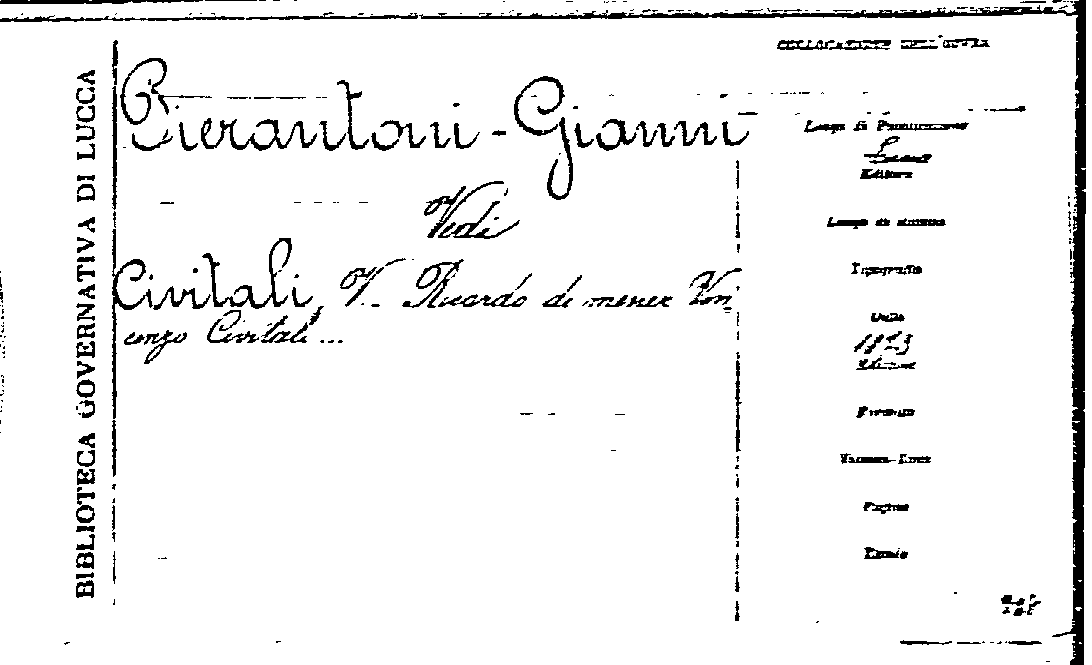 BIBLIOTECA GOVERNATIVA DI LUCCA
COLLOCAZIONE DELL'OPERA
Pierantoni-Gianni
Vedi
Civitali, V. Ricordo di messer Vin
cenzo Civitali...
Luogo di Pubblicazione
Lucca
Editore
Luogo di stampa
Tipografia
Data
Edizione
Formato
Pagine